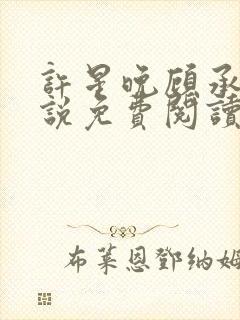 許星晚顧承
說免費閱讀
布萊恩鄧納姆